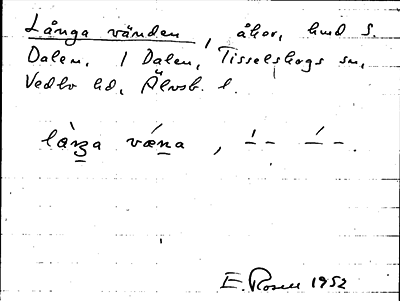 Långa vänden, åkor, hmd S.
Dalen. 1 Dalen, Tisselskogs sn,
Vedbo hd, Älvsb. l.
làŋa vǽna, –́ – –́ –.
E. Rosell 1952